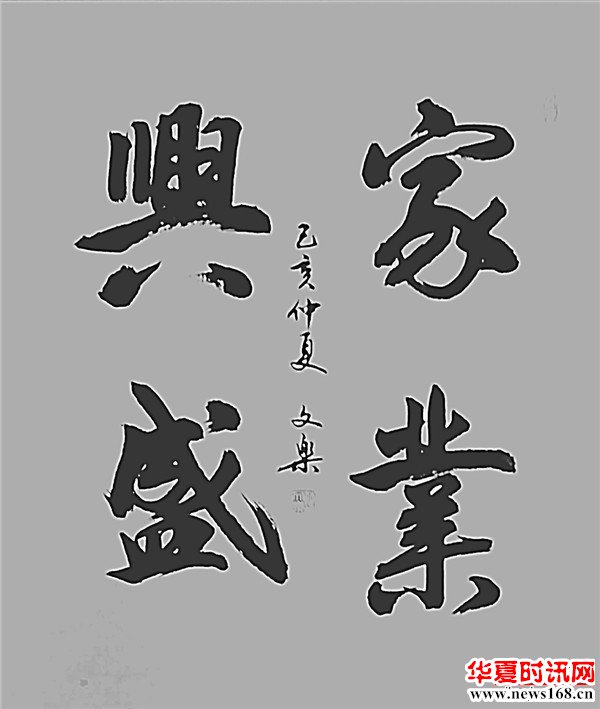 家業
興盛
己亥仲夏 文樂
华夏时讯网
www.news168.cn